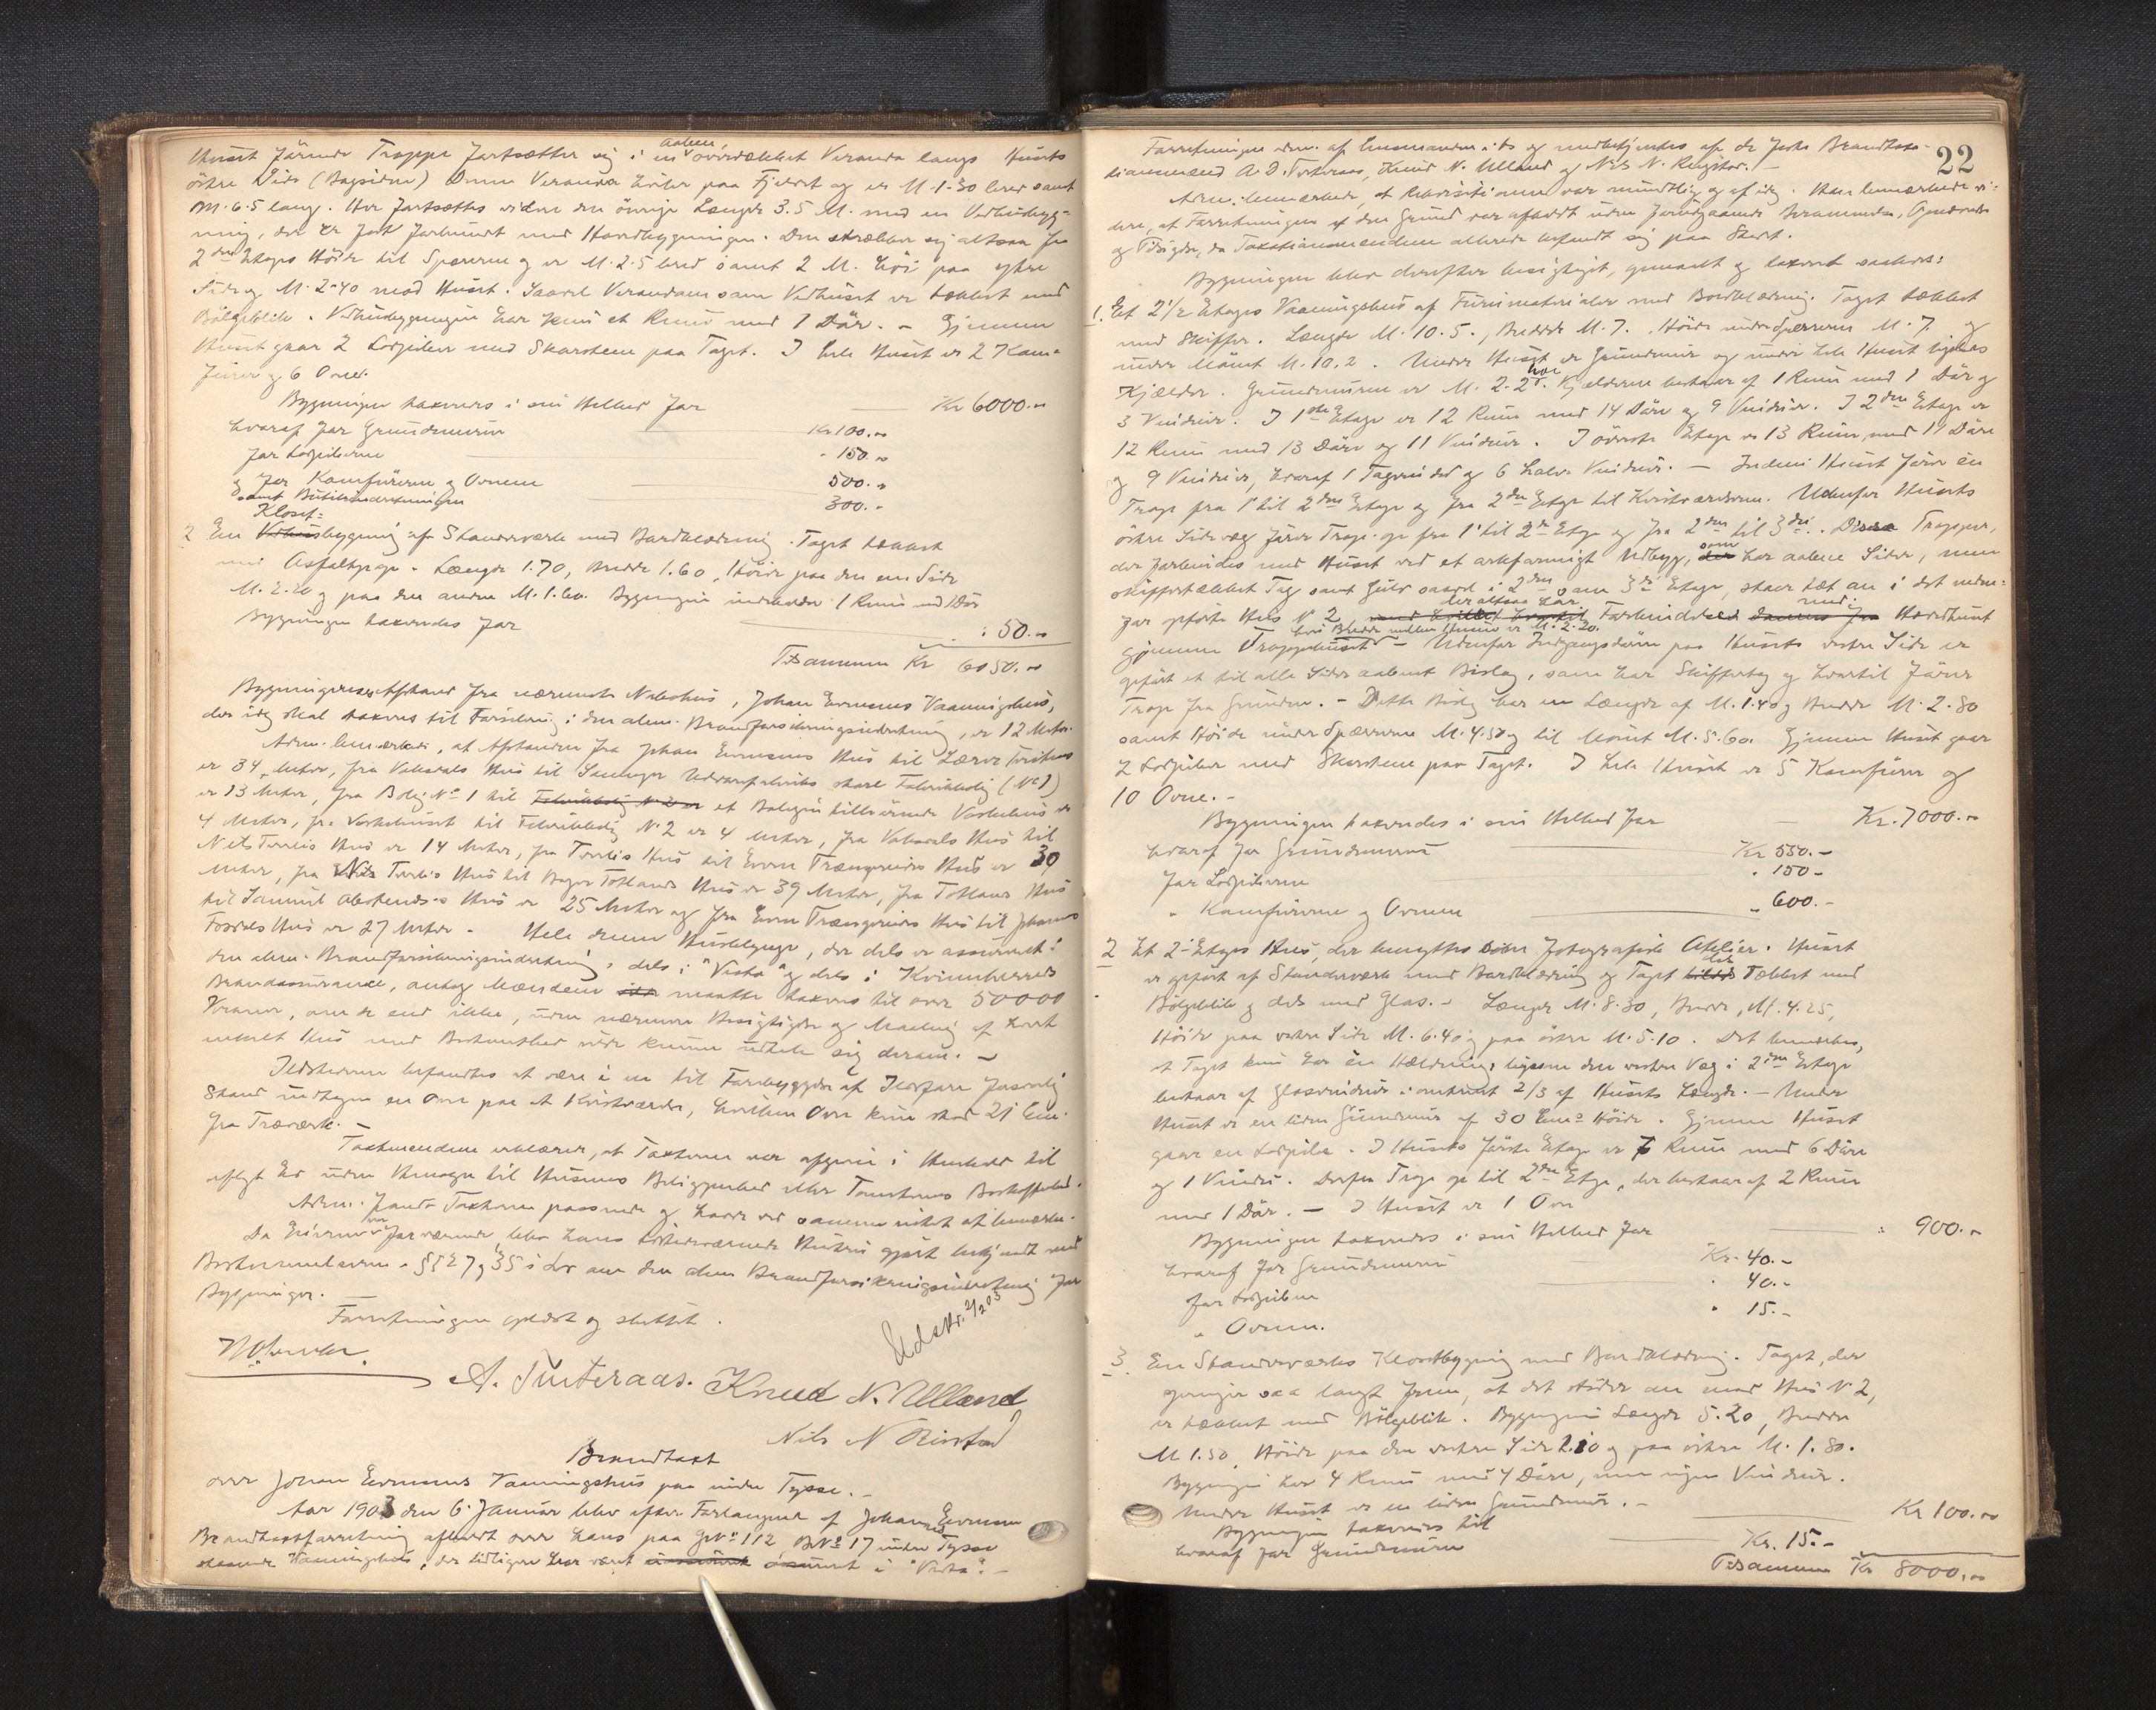 Huset förende Trappe fortsætter sig i en aaben overdækket Veranda langs Husets
östre Side (Bagsiden) Denne Veranda hviler paa Fjeldet og er M. 1.30 bred samt
M. 6.5 lang. Her fortsættes videre den övrige Længde 3.5 M. med en Vedhusbyg-
ning, der er fast forbundet med Hovedbygningen. Den strækker sig altsaa fra
2den Etages Höide til Spærrerne og er M. 2.5 bred samt 2 M. höi paa ytre
Side og M. 2.40 mod Huset. Saavel Verandaen som Vedhuset er tækket med
Bölgeblik. Vedhusbygningen har kun et Rum med 1 Dör. - Gjennem
Huset gaar 2 Lodpiber med Skorstene paa Taget. I hele Huset er 2 Kom-
fürer og 6 Ovne.
Bygningen taxeres i sin Helhed for Kr 6000.00
hvoraf for Grundmuren Kr. 100.00
for Lodpiberne - 150.00
og for Komfürerne og Ovnene 500.00
samt 300.-
2 En Kloset-bygning af Standerværk med Bordklædning. Taget tækket
med Asfaltpap. Længde 1.70, Bredde 1.60, Höide paa den ene Side
M. 2.20 og paa den anden M. 1.60. Bygningen indeholder 1 Rum med 1 Dör
Bygningen taxeredes for : 50.00
Tilsammen Kr 6050.00
Bygningernes Afstand fra nærmeste Nabohus, Johan Evensens Vaaningshus,
der idag skal taxeres til Forsikring i den alm. Brandforsikringsindretning, er 12 Meter.
Adm. bemærkede, at Afstanden fra Johan Evensens Hus til Lærer
er 34 Meter, fra Hus til Fabrikbolig (No 1)
er 13 Meter, fra Bolig No 1 til et Boligen tilhörende Vaskehus er
4 Meter, fra Vaskehuset til Fabrikbolig No 2 er 4 Meter, fra Hus til
Nils Hus er 14 Meter, fra Hus til Hus er 30
Meter, fra Nils Hus til Hus er 39 Meter, fra Hus
til Hus er 25 Meter og fra Hus til Johannes
Hus er 27 Meter - Hele denne Husklynge, der dels er assureret i
den alm. Brandforsikringsindretning, dels i "Vesta" og dels i Kvinnherreds
Brandassurance, antog Mændene maatte taxeres til over 50000
Kroner, om de end ikke, uden nærmere Besigtigelse og Maaling af hvert
enkelt Hus med Bestemthed vilde kunne udtale sig derom. -
Ildstederne befandtes at være i en til Forebyggelse af Ildsfare forsvarlig
Stand undtagen en Ovn paa et Kvistværelse, hvilken Ovn kun stod 21 Cm.
fra Træværk. -
Taxtmændene erklærer, at Taxterne var afgivne i Henhold til
aflagt Ed uden Hensyn til Husenes Beliggenhed eller Tomternes Beskaffenhed.
Adm. fandt Taxterne passende og havde ved samme intet at bemærke.
Da Eieren var fraværende blev hans tilstedeværende Hustru gjort bekjendt med
Bestemmelserne i §§ 27 og 35 i Lov om den alm. Brandforsikringsindretning for
Bygninger.
Forretningen oplæst og sluttet.
Udskr. 2/2 03
A. Tveteraas. Knud N. Ulland
Nils N
Brandtaxt
over Johan Evensens Vaaningshus paa indre Tysse. -
Aar 1903 den 6. Januar blev efter Forlangende af Johannes Evensen
Brandtaxtforretning afholdt over hans paa Gno 112, Bno 17 indre Tysse
staaende Vaaningshus, der tidligere har været assureret i "Vesta". -
22
Forretningen adm. af Lensmanden i ds og medbetjentes af de faste Brandtaxa-
tionsmænd A. D. Tveteraas, Knud N. Ulland og Nils N.
Adm. bemærkede, at Rekvisitionen var mundtlig og af idag. Han bemærkede vi-
dere, at Forretningen af den Grund var afholdt uden forudgaaende
og da Taxationsmændene allerede befandt sig paa Stedet.
Bygningen blev derefter besigtiget, opmaalt og taxeret saaledes:
1. Et 2 1/2 Etages Vaaningshus af Furumaterialer med Bordklædning. Taget tækket
med Skiffer. Længde M. 10.5., Bredde M. 7. Höide under Spærrerne M. 7 og
under Mönet M. 10.2. Under Huset er Grundmur og under hele Huset ligeledes
Kjælder. Grundmuren er M. 2.2 höi. Kjælderen bestaar af 1 Rum med 1 Dör og
3 Vinduer. I 1ste Etage er 12 Rum med 14 Döre og 9 Vinduer. I 2den Etage er
12 Rum med 13 Döre og 11 Vinduer. I överste Etage er 13 Rum, med 11 Döre
og 9 Vinduer, hvoraf 1 Tagvindu og 6 halve Vinduer. - Indeni Huset förer en
Trap fra 1 til 2den Etage og fra 2den Etage til Kvistværelserne. Udenfor Husets
östre Sidevæg förer Trap op fra 1 til 2den Etage og fra 2den til 3die. Disse Trapper,
der forbindes med Huset ved et arkformigt Udbygg, som har aabne Sider, men
skiffertækket Tag samt Gulv saavel i 2den som 3die Etage, staar tæt an i det neden-
for opförte Hus No 2 der altsaa har Forbindelse med Hovedhuset
gjennem Trappehuset - hvis Bredde mellem Husene er M. 2.20. Udenfor Indgangsdören paa Husets vestre Side er
opfört et til alle Sider aabent Bislag, som har Skiffertag og hvortil förer
Trap fra Grunden. - Dette Bislag har en Længde af M. 1.40 og Bredde M. 2.80
samt Höide under Spærrerne M. 4.50 og til Mönet M. 5.60. Gjennem Huset gaar
2 Lodpiber med Skorstene paa Taget. I hele Huset er 5 Komfürer og
10 Ovne. -
Bygningen taxeredes i sin Helhed for - Kr. 7000.00
hvoraf for Grundmuren Kr 550.-
for Lodpiberne " 150-
" Komfürerne og Ovnene " 600.-
2 Et 2-Etages Hus, der benyttes som fotografisk Atelier. Huset
er opfört af Standerværk med Bordklædning og Taget dels tækket med
Bölgeblik og dels med Glas. - Længde M. 8.30, Bredde, M. 4.25,
Höide paa vestre Side M. 6.40 og paa östre M. 5.10. Det bemærkes,
at Taget kun har en Hældning, ligesom den vestre Væg i 2den Etage
bestaar af Glasvinduer i omtrent 2/3 af Husets Længde. - Under
Huset er en liden Grundmur af 30 Cm.s Höide. Gjennem Huset
gaar en Lodpibe. I Husets förste Etage er 7 Rum med 6 Döre
og 1 Vindu. Derfra Trap op til 2den Etage, der bestaar af 2 Rum
med 1 Dör. - I Huset er 1 Ovn
Bygningen taxeredes i sin Helhed for : 900.-
hvoraf for Grundmuren Kr. 40.-
for Lodpiben " 40.-
" Ovnen. " 15.-
3. En Standerværks Klosetbygning med Bordklædning. Taget, der
springer saa langt frem, at det stöder an mod Hus No 2,
er tækket med Bölgeblik. Bygningens Længde 5.20, Bredde
M 1.50, Höide paa den vestre Side 2.10 og paa östre M. 1.80.
Bygningen har 4 Rum med 4 Döre, men ingen Vinduer.
Under Huset er en liden Grundmur. -
Bygningen taxeredes til Kr 100.00
hvoraf for Grundmuren Kr. 15.-
Tilsammen Kr 8000.00